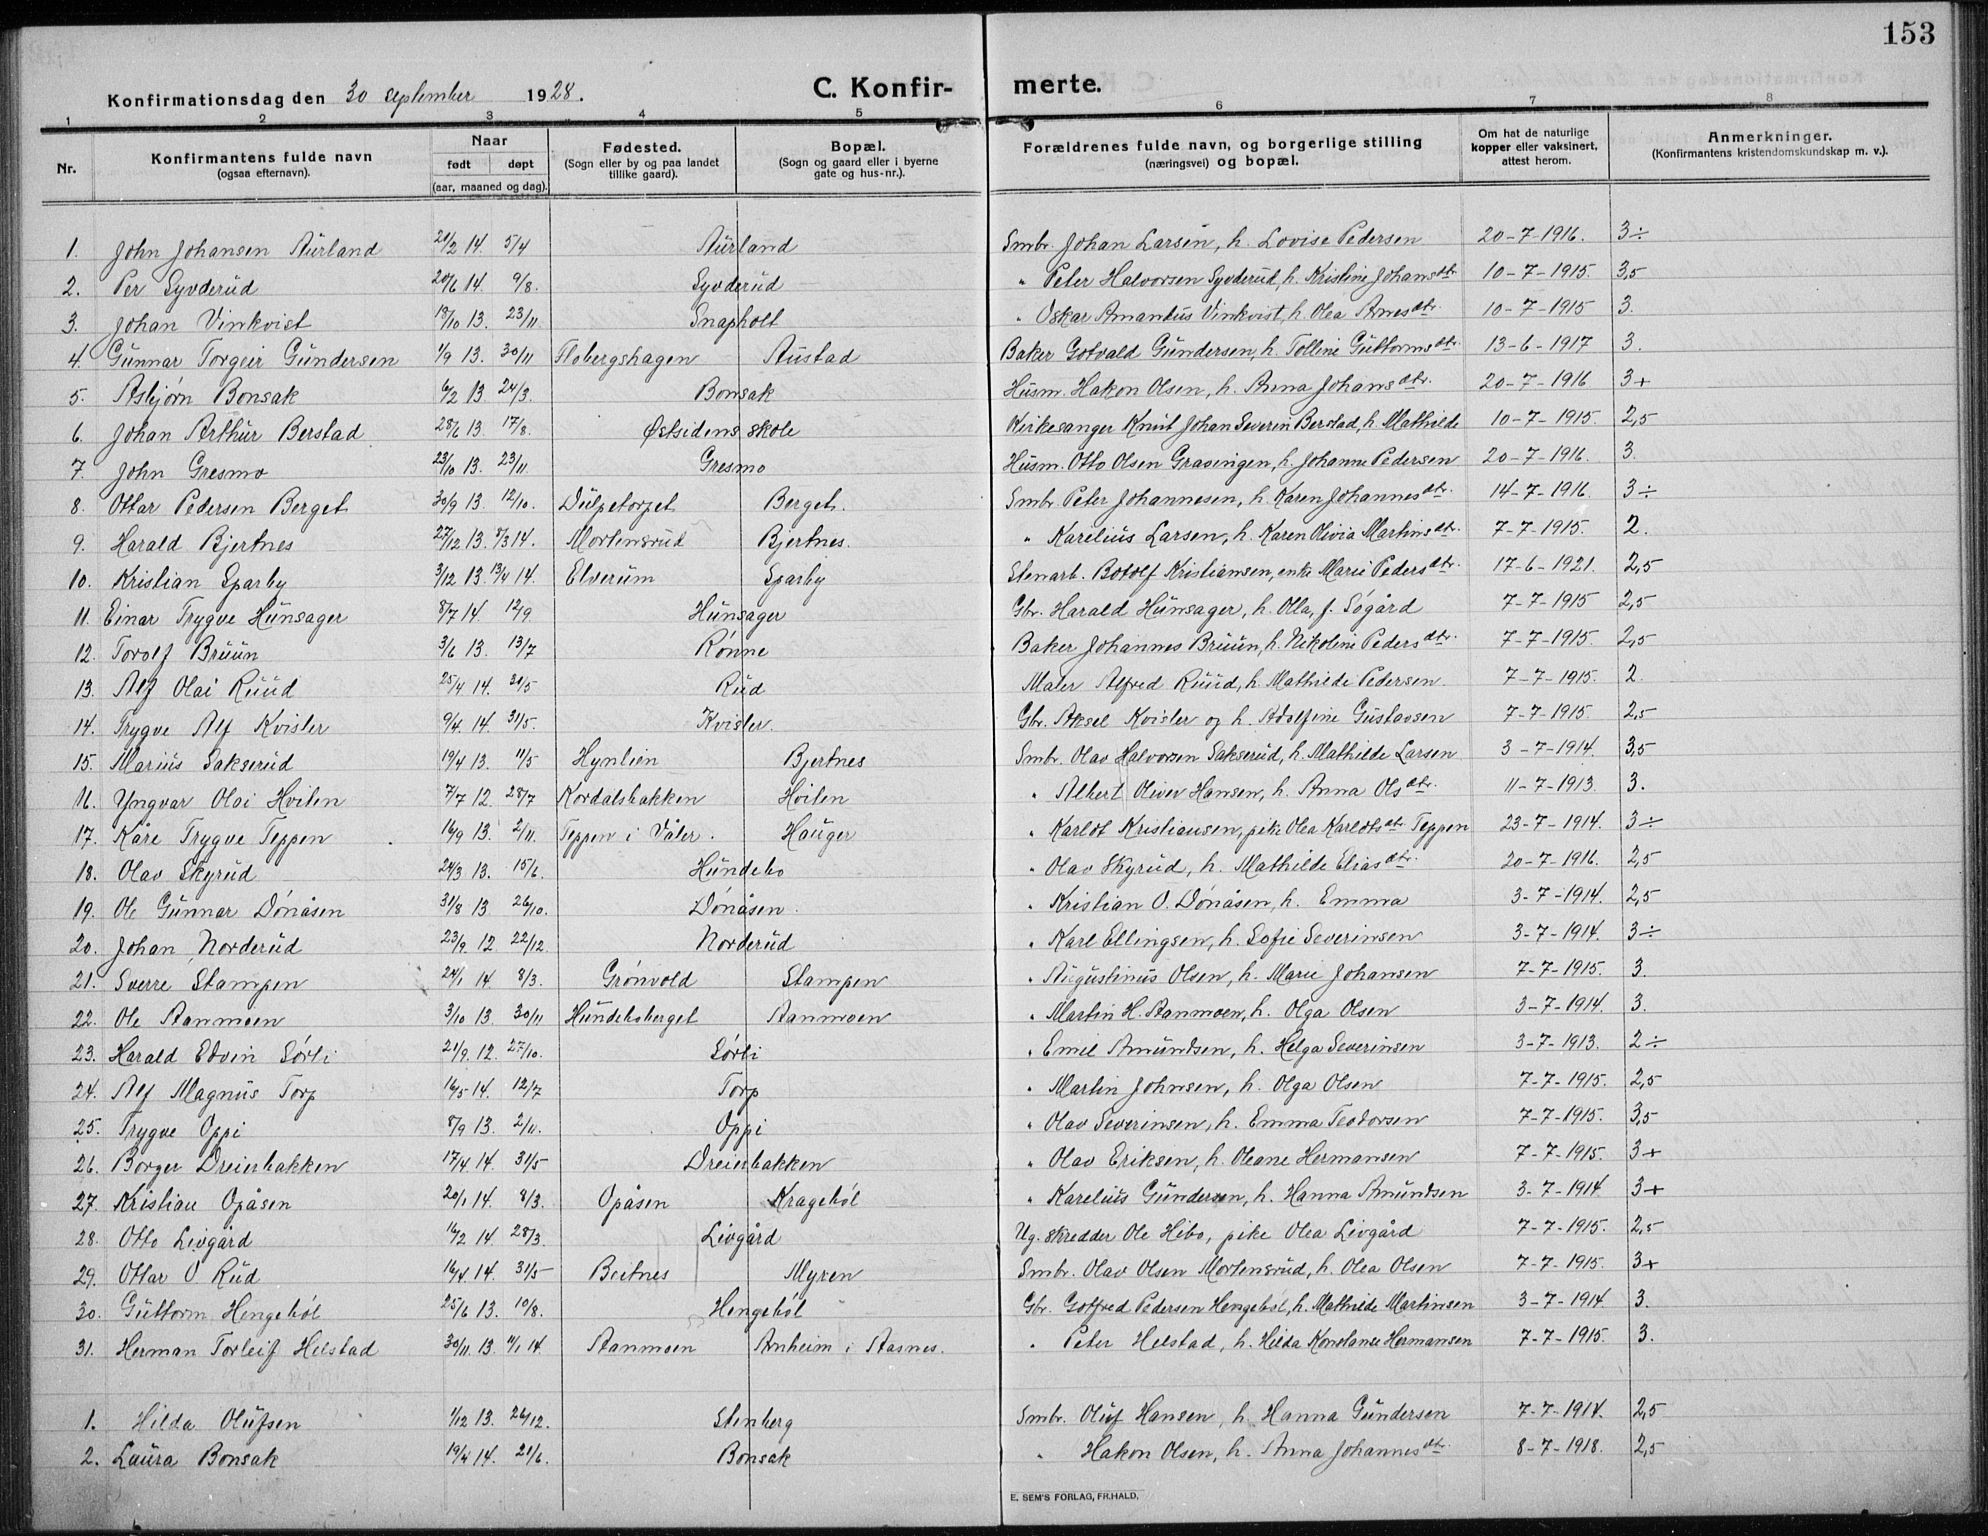 153
Konfirmationsdag den 30 september 1928. C. Konfirmerte.
1 2 3 4 5 6 7 8
Nr. | Konfirmantens fulde navn (ogsaa efternavn). | Naar født døpt (aar, maaned og dag). | Fødested. (Sogn eller by og paa landet tillike gaard). | Bopæl. (Sogn og gaard eller i byerne gate og hus-nr.). | Forældrenes fulde navn, og borgerlige stilling (næringsvei) og bopæl. | Om hat de naturlige kopper eller vaksinert, attest herom. | Anmerkninger. (Konfirmantens kristendomskundskap m. v.).
1. John Johansen Aurland 21/2 14. 5/4 Aurland Smbr. Johan Larsen, h. Lovise Pedersen 20-7-1916. 3÷
2. Per Syvderud 20/6 14. 9/8. Syvderud " Peter Halvorsen Syvderud, h. Kristine Johansdtr. 10-7-1915. 3,5
3. Johan Vinkvist 18/10 13. 23/11 Snapholt " Oskar Amandus Vinkvist, h. Olea Arnesdtr. 10-7-1915 3.
4. Gunnar Torgeir Gundersen 1/9 13. 30/11 Flobergshagen Austad Baker Gotvald Gundersen, h. Tolline Guttormsdtr. 13-6-1917 3.
5. Asbjørn Bonsak 6/2 13 24/3. Bonsak Husm. Hakon Olsen, h. Anna Johansdtr. 20-7-1916 3+
6. Johan Arthur Berstad 28/6 13. 17/8. Østsidens skole Kirkesanger Knut Johan Severin Berstad, h. Mathilde 10-7-1915. 2,5
7. John Gresmo 23/10 13. 23/11 Gresmo Husm. Otto Olsen Gravingen, h. Johanne Pedersen 20-7-1916. 3.
8. Ottar Pedersen Berget 30/9 13. 12/10. Dulpetorpet Berget. Smbr. Peter Johannesen, h. Karen Johannesdtr. 14-7-1916. 3÷
9. Harald Bjertnes 27/12 13. 8/3 14. Mortensrud Bjertnes. " Karelius Larsen, h. Karen Olivia Martinsdtr. 7-7-1915. 2.
10. Kristian Sparby 3/12 13. 13/4 14. Elverum Sparby Stenarb. Botolf Kristiansen, enke Marie Pedersdtr. 17-6-1921. 2,5
11. Einar Trygve Hunsager 8/7 14. 12/9 Hunsager Gbr. Harald Hunsager, h. Olla, f. Søgård 7-7-1915 2,5
12. Torolf Bruun 3/6 13. 13/7 Rønne Baker Johannes Bruun, h. Nikoline Pedersdtr. 7-7-1915. 2,5
13. Alf Olai Ruud 25/4 14. 31/5 Rud Maler Alfred Ruud, h. Mathilde Pedersen 7-7-1915. 2.
14. Trygve Alf Kvisler 9/4 14. 31/5. Kvisler. Gbr. Aksel Kvisler og h. Adolfine Gustavsen 7-7-1915. 2,5
15. Marius Sakserud 19/4 13. 11/5 Hynlien Bjertnes Smbr. Olav Halvorsen Sakserud, h. Mathilde Larsen 3-7-1914. 3,5
16. Yngvar Olai Hvilen 7/7 12. 28/7 Kordalsbakken Hvilen " Albert Oliver Hansen, h. Anna Olsdtr. 11-7-1913. 3.
17. Kåre Trygve Teppen 16/9 13. 2/11. Teppen i Våler. Hauger " Karldt Kristiansen, pike Olea Karldtsdtr. Teppen 23-7-1914. 3÷
18. Olav Skyrud 24/3 13. 15/6. Hundebo " Olav Skyrud, h. Mathilde Eliasdtr. 20-7-1916. 2,5
19. Ole Gunnar Dónåsen 31/8 13 26/10. Dónåsen. " Kristian O. Dónåsen, h. Emma 3-7-1914. 2,5
20. Johan Norderud 23/9. 12 22/12. Norderud " Karl Ellingsen, h. Sofie Severinsen 3-7-1914. 3÷
21. Sverre Stampen 24/1 14. 8/3. Grónvold Stampen " Augustinus Olsen, h. Marie Johansen 7-7-1915. 3.
22. Ole Aanmoen 3/10 13. 30/11 Hundeboberget Aanmoen " Martin H. Aanmoen, h. Olga Olsen 3-7-1914. 3.
23. Harald Edvin Sórli 21/9. 12. 27/10. Sórli " Emil Amundsen, h. Helga Severinsen 3-7-1913. 2÷
24. Alf Magnus Torp 16/5 14. 12/7 Torp " Martin Johnsen, h. Olga Olsen 7-7-1915. 2,5
25. Trygve Oppi 8/9 13. 2/11. Oppi " Olav Severinsen, h. Emma Teodorsen 7-7-1915. 3,5
26. Borger Dreierbakken 17/4 14. 31/5 Dreierbakken " Olav Eriksen, h. Oleane Hermansen 7-7-1915. 3+
27. Kristian Opåsen 20/1 14. 8/3. Opåsen Krageból " Karelius Gundersen, h. Hanna Amundsen 3-7-1914 3+
28. Otto Livgård 16/2 14. 28/3. Livgård Ug. skredder Ole Hebo, pike Olea Livgård 7-7-1915. 2,5
29. Ottar O. Rud 16/4. 14. 31/5 Beitnes Myren Smbr. Olav Olsen Mortensrud, h. Olea Olsen 7-7-1915. 3+
30. Guttorm Hengeból 25/6 13. 10/8. Hengeból Gbr. Gotfred Pedersen Hengeból, h. Mathilde Martinsen 3-7-1914. 3.
31. Herman Torleif Helstad 30/11. 13. 11/1 14. Aanmoen Anheim i Aasnes. " Peter Helstad, h. Hilda Konstanse Hermansen 7-7-1915. 3.
1. Hilda Olufsen 1/12 13. 26/12. Stenberg Smbr. Oluf Hansen, h. Hanna Gundersen 7-7-1914. 2,5
2. Laura Bonsak 19/4 14. 21/6. Bonsak " Hakon Olsen, h. Anna Johannesdtr. 8-7-1918. 2,5
E. SEM'S FORLAG, FR.HALD.